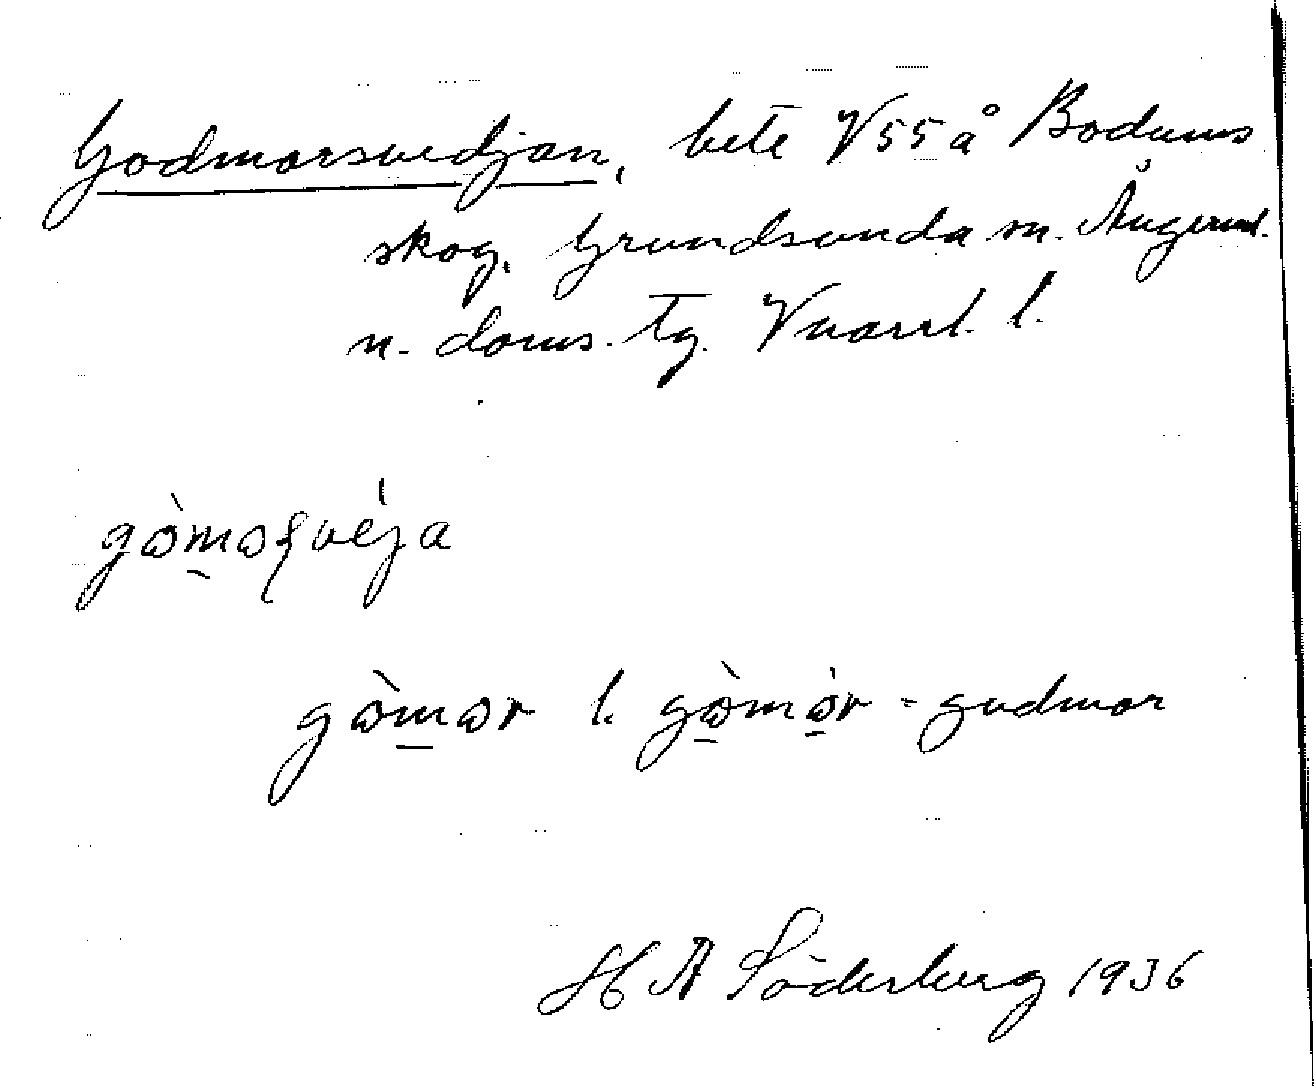 Godmorsvedjan, bete V55 å Bodums
skog, Grundsunda sn. Ångerml.
n. doms. tg. Vnorrl. l.
gòmorsvéja
gòmor l. gòmòr = gudmor
H A Söderberg 1936